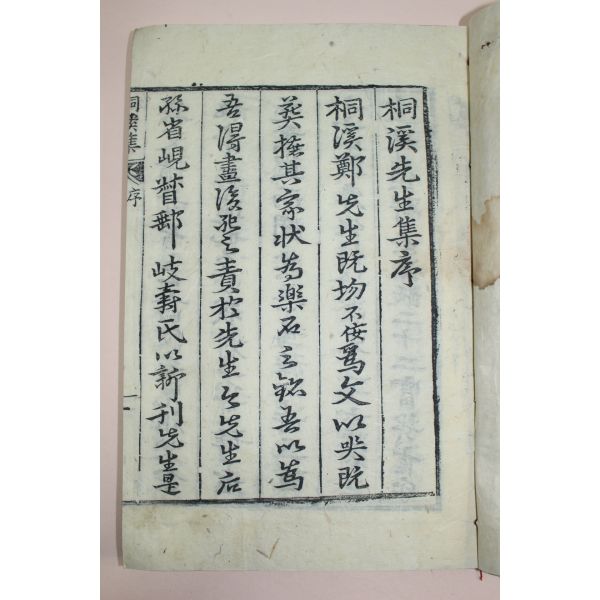 桐溪先生集序
桐溪鄭先生旣歿不佞爲文以哭旣
葬據其家狀爲樂石之銘吾以爲
吾得盡後死之責於先生矣先生后
孫省峴督郵岐壽氏以新刊先生
桐溪集 序 一